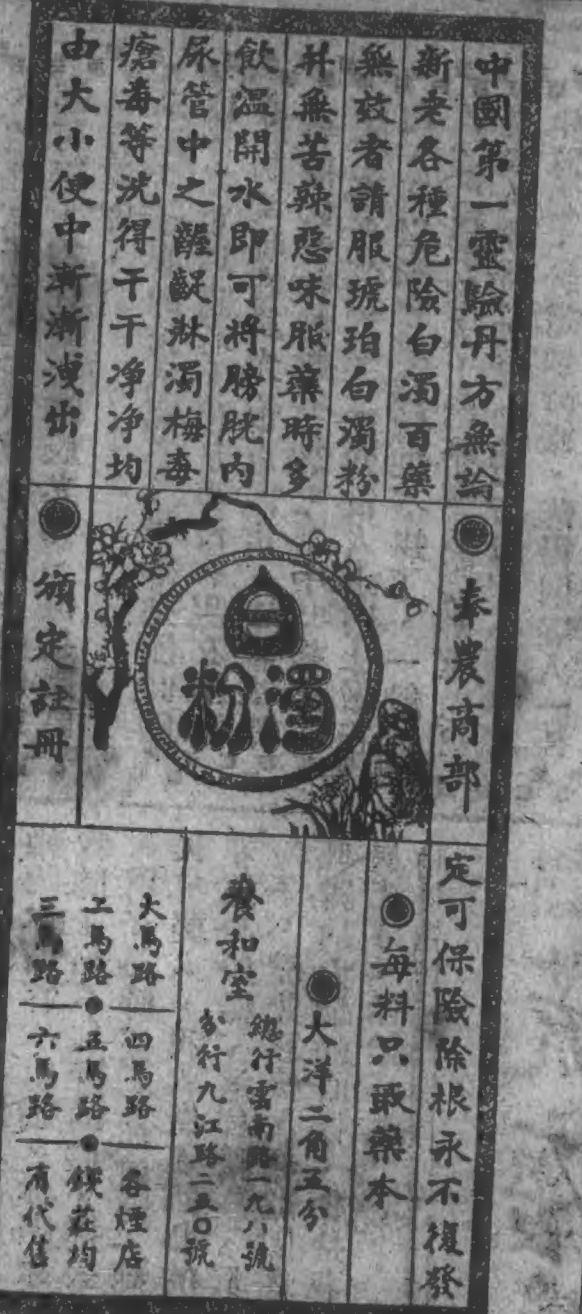 中國第一靈驗丹方無論
新老各種危險白濁百藥
無效者請服琥珀白濁粉
幷無苦辣惡味服藥時多
飲溫開水即可將膀胱內
尿管中之齷齪淋濁梅毒
瘡毒等洗得干干净净均
由大小便中漸漸洩出
奉農商部
白
濁粉
頒定註冊
定可保險除根永不復發
每料只取藥本
大洋二角五分
養和室
總行雲南路一九八號
分行九江路二五〇號
大馬路
二馬路
三馬路
四馬路
五馬路
六馬路
各煙店
錢莊均
有代售